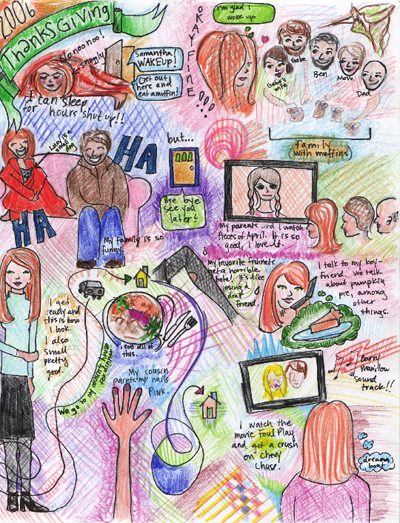 2006
Thanksgiving
Nonoonoo!
Snuggly
Samantha,
WAKEUP!
Get out
here and
eat a muffin!
I can sleep
for hours shut up!!
OKAY FINE!!!
I'm glad I
woke up
Gabe
Ben
Mom
Dad
family
(with muffins)
HA
HA
but...
Bye bye
see you
later!
My family is so
funny.
My parents and I watch
Pieces of April. It is so
good, I love it.
I get
ready and this is how
I look.
I also
smell
pretty
good.
We go to my
I eat all of
this.
My favorite tshirt
get a horrible
hole, it's like
losing a dear
friend.
I talk to my boy-
friend. We talk
about pumpkin
pie, among
other
things.
My cousin
paints my nails
Pink.
Barry
Manilow
sound
track!!
I watch the
movie Foul Play
and get a crush
on Chevy
Chase.
dream
boat